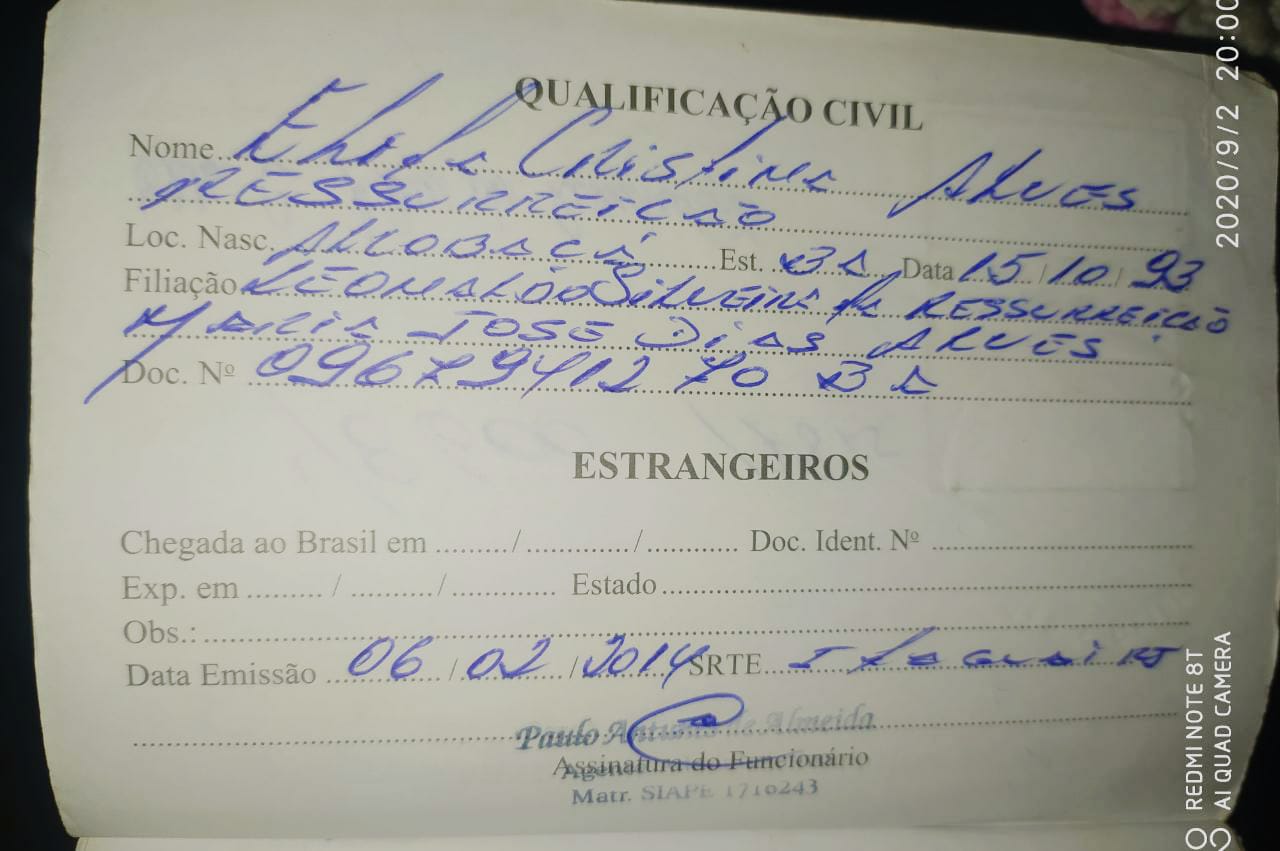 QUALIFICAÇÃO CIVIL
Nome Cristina Alves
RESSURREIÇÃO
Loc. Nasc. ALCOBAÇA Est. BA Data 15/10/93
Filiação LEONALDO Silveira da RESSURREIÇÃO
MARIA JOSÉ DIAS ALVES
Doc. Nº 0967941270 BA
ESTRANGEIROS
Chegada ao Brasil em ........./............./............ Doc. Ident. Nº
Exp. em ........./........../............ Estado
Obs.:
Data Emissão 06/02/2014 SRTE Itaguai RJ
Paulo Antonio de Almeida
Assinatura do Funcionário
Matr. SIAPE 1716243
2020/9/2 20:00
REDMI NOTE 8T
AI QUAD CAMERA